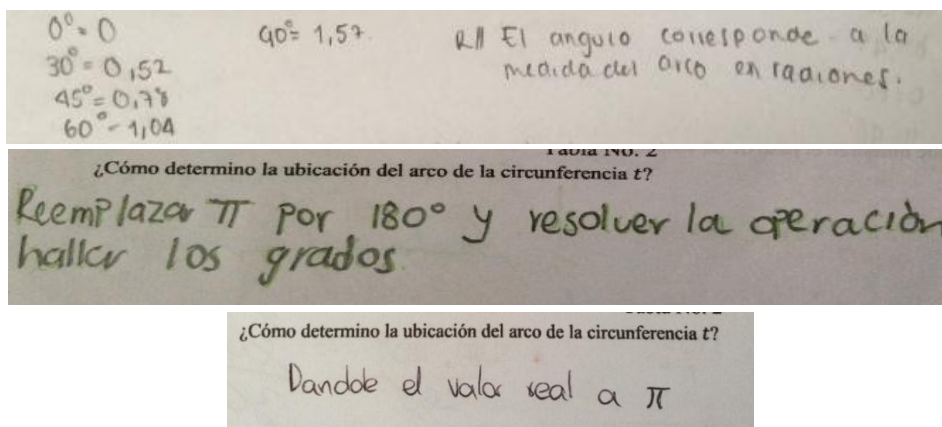 0° = 0
30° = 0,52
45° = 0,78
60° - 1,04
90° = 1,57.
R// El angulo corresponde a la
medida del arco en radiones.
Tabla No. 2
¿Cómo determino la ubicación del arco de la circunferencia t?
Reemplazar π por 180° y resolver la operación
hallar los grados.
¿Cómo determino la ubicación del arco de la circunferencia t?
Dandole el valor real a π